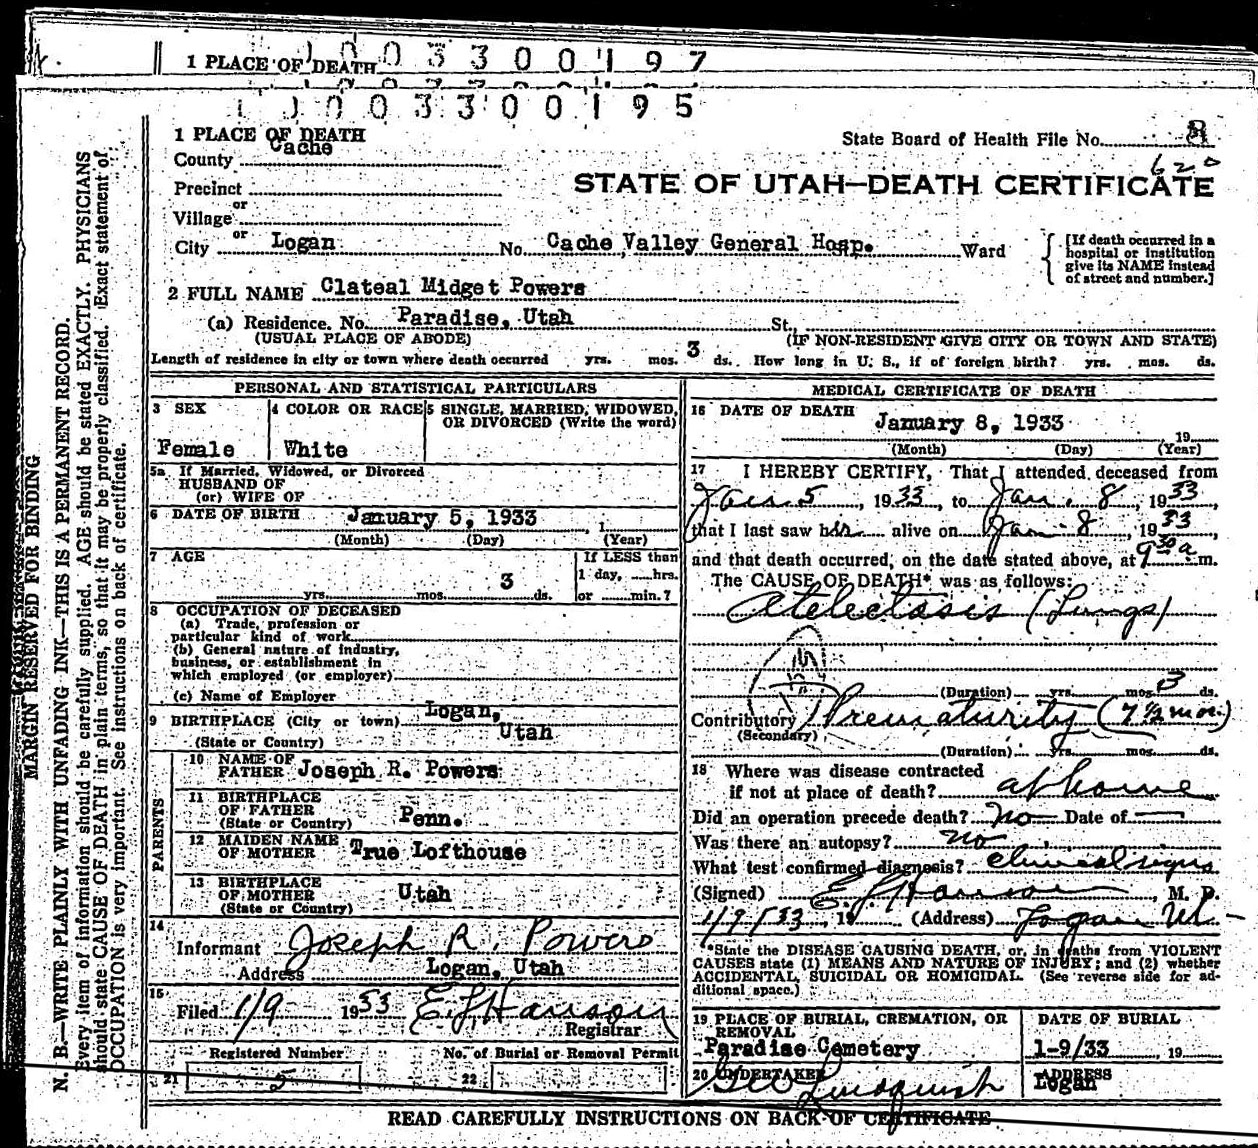 1 PLACE OF DEATH 1003300197
1003300195
1 PLACE OF DEATH
State Board of Health File No. 8
County Cache
620
Precinct
STATE OF UTAH—DEATH CERTIFICATE
or
Village
or
City Logan No. Cache Valley General Hosp. Ward
[If death occurred in a hospital or institution give its NAME instead of street and number.]
2 FULL NAME Clateal Midget Powers
(a) Residence. No. Paradise, Utah St.
(USUAL PLACE OF ABODE) (IF NON-RESIDENT GIVE CITY OR TOWN AND STATE)
Length of residence in city or town where death occurred yrs. mos. 3 ds. How long in U. S., if of foreign birth? yrs. mos. ds.
PERSONAL AND STATISTICAL PARTICULARS
3 SEX 4 COLOR OR RACE 5 SINGLE, MARRIED, WIDOWED,
OR DIVORCED (Write the word)
Female White
5a If Married, Widowed, or Divorced
HUSBAND OF
(or) WIFE OF
6 DATE OF BIRTH January 5, 1933 1
(Month) (Day) (Year)
7 AGE If LESS than
3 1 day, hrs.
yrs. mos. ds. or min.?
8 OCCUPATION OF DECEASED
(a) Trade, profession or
particular kind of work
(b) General nature of industry,
business, or establishment in
which employed (or employer)
(c) Name of Employer
9 BIRTHPLACE (City or town) Logan,
Utah
(State or Country)
PARENTS
10 NAME OF
FATHER Joseph R. Powers
11 BIRTHPLACE
OF FATHER Penn.
(State or Country)
12 MAIDEN NAME
OF MOTHER True Lofthouse
13 BIRTHPLACE
OF MOTHER Utah
(State or Country)
14
Informant Joseph R. Powers
Address Logan, Utah
15
Filed 1/9 1933 E. L. Hanson
Registrar
Registered Number No. of Burial or Removal Permit
21 5 22
MEDICAL CERTIFICATE OF DEATH
16 DATE OF DEATH
January 8, 1933
19
(Month) (Day) (Year)
17 I HEREBY CERTIFY, That I attended deceased from
Jan 5, 1933, to Jan. 8, 1933,
that I last saw her alive on Jan 8, 1933
and that death occurred, on the date stated above, at 9 30 a m.
The CAUSE OF DEATH* was as follows:
Atelectasis (Lungs)
(Duration) yrs. mos. 3 ds.
Contributory Prematurity (7 1/2 mos.)
(Secondary)
(Duration) yrs. mos. ds.
18 Where was disease contracted
if not at place of death? at home
Did an operation precede death? No Date of —
Was there an autopsy? no
What test confirmed diagnosis? clinical signs
(Signed) E. L. Hanson, M. D.
1/9/33 19 (Address) Logan Ut.
*State the DISEASE CAUSING DEATH, or, in deaths from VIOLENT
CAUSES state (1) MEANS AND NATURE OF INJURY; and (2) whether
ACCIDENTAL, SUICIDAL OR HOMICIDAL. (See reverse side for ad-
ditional space.)
19 PLACE OF BURIAL, CREMATION, OR
REMOVAL
Paradise Cemetery
DATE OF BURIAL
1-9/33, 19
20 UNDERTAKER
Geo Lindquist
ADDRESS
Logan
READ CAREFULLY INSTRUCTIONS ON BACK OF CERTIFICATE
MARGIN RESERVED FOR BINDING
N. B.—WRITE PLAINLY WITH UNFADING INK—THIS IS A PERMANENT RECORD.
Every item of information should be carefully supplied. AGE should be stated EXACTLY. PHYSICIANS
should state CAUSE OF DEATH in plain terms, so that it may be properly classified. Exact statement of
OCCUPATION is very important. See instructions on back of certificate.